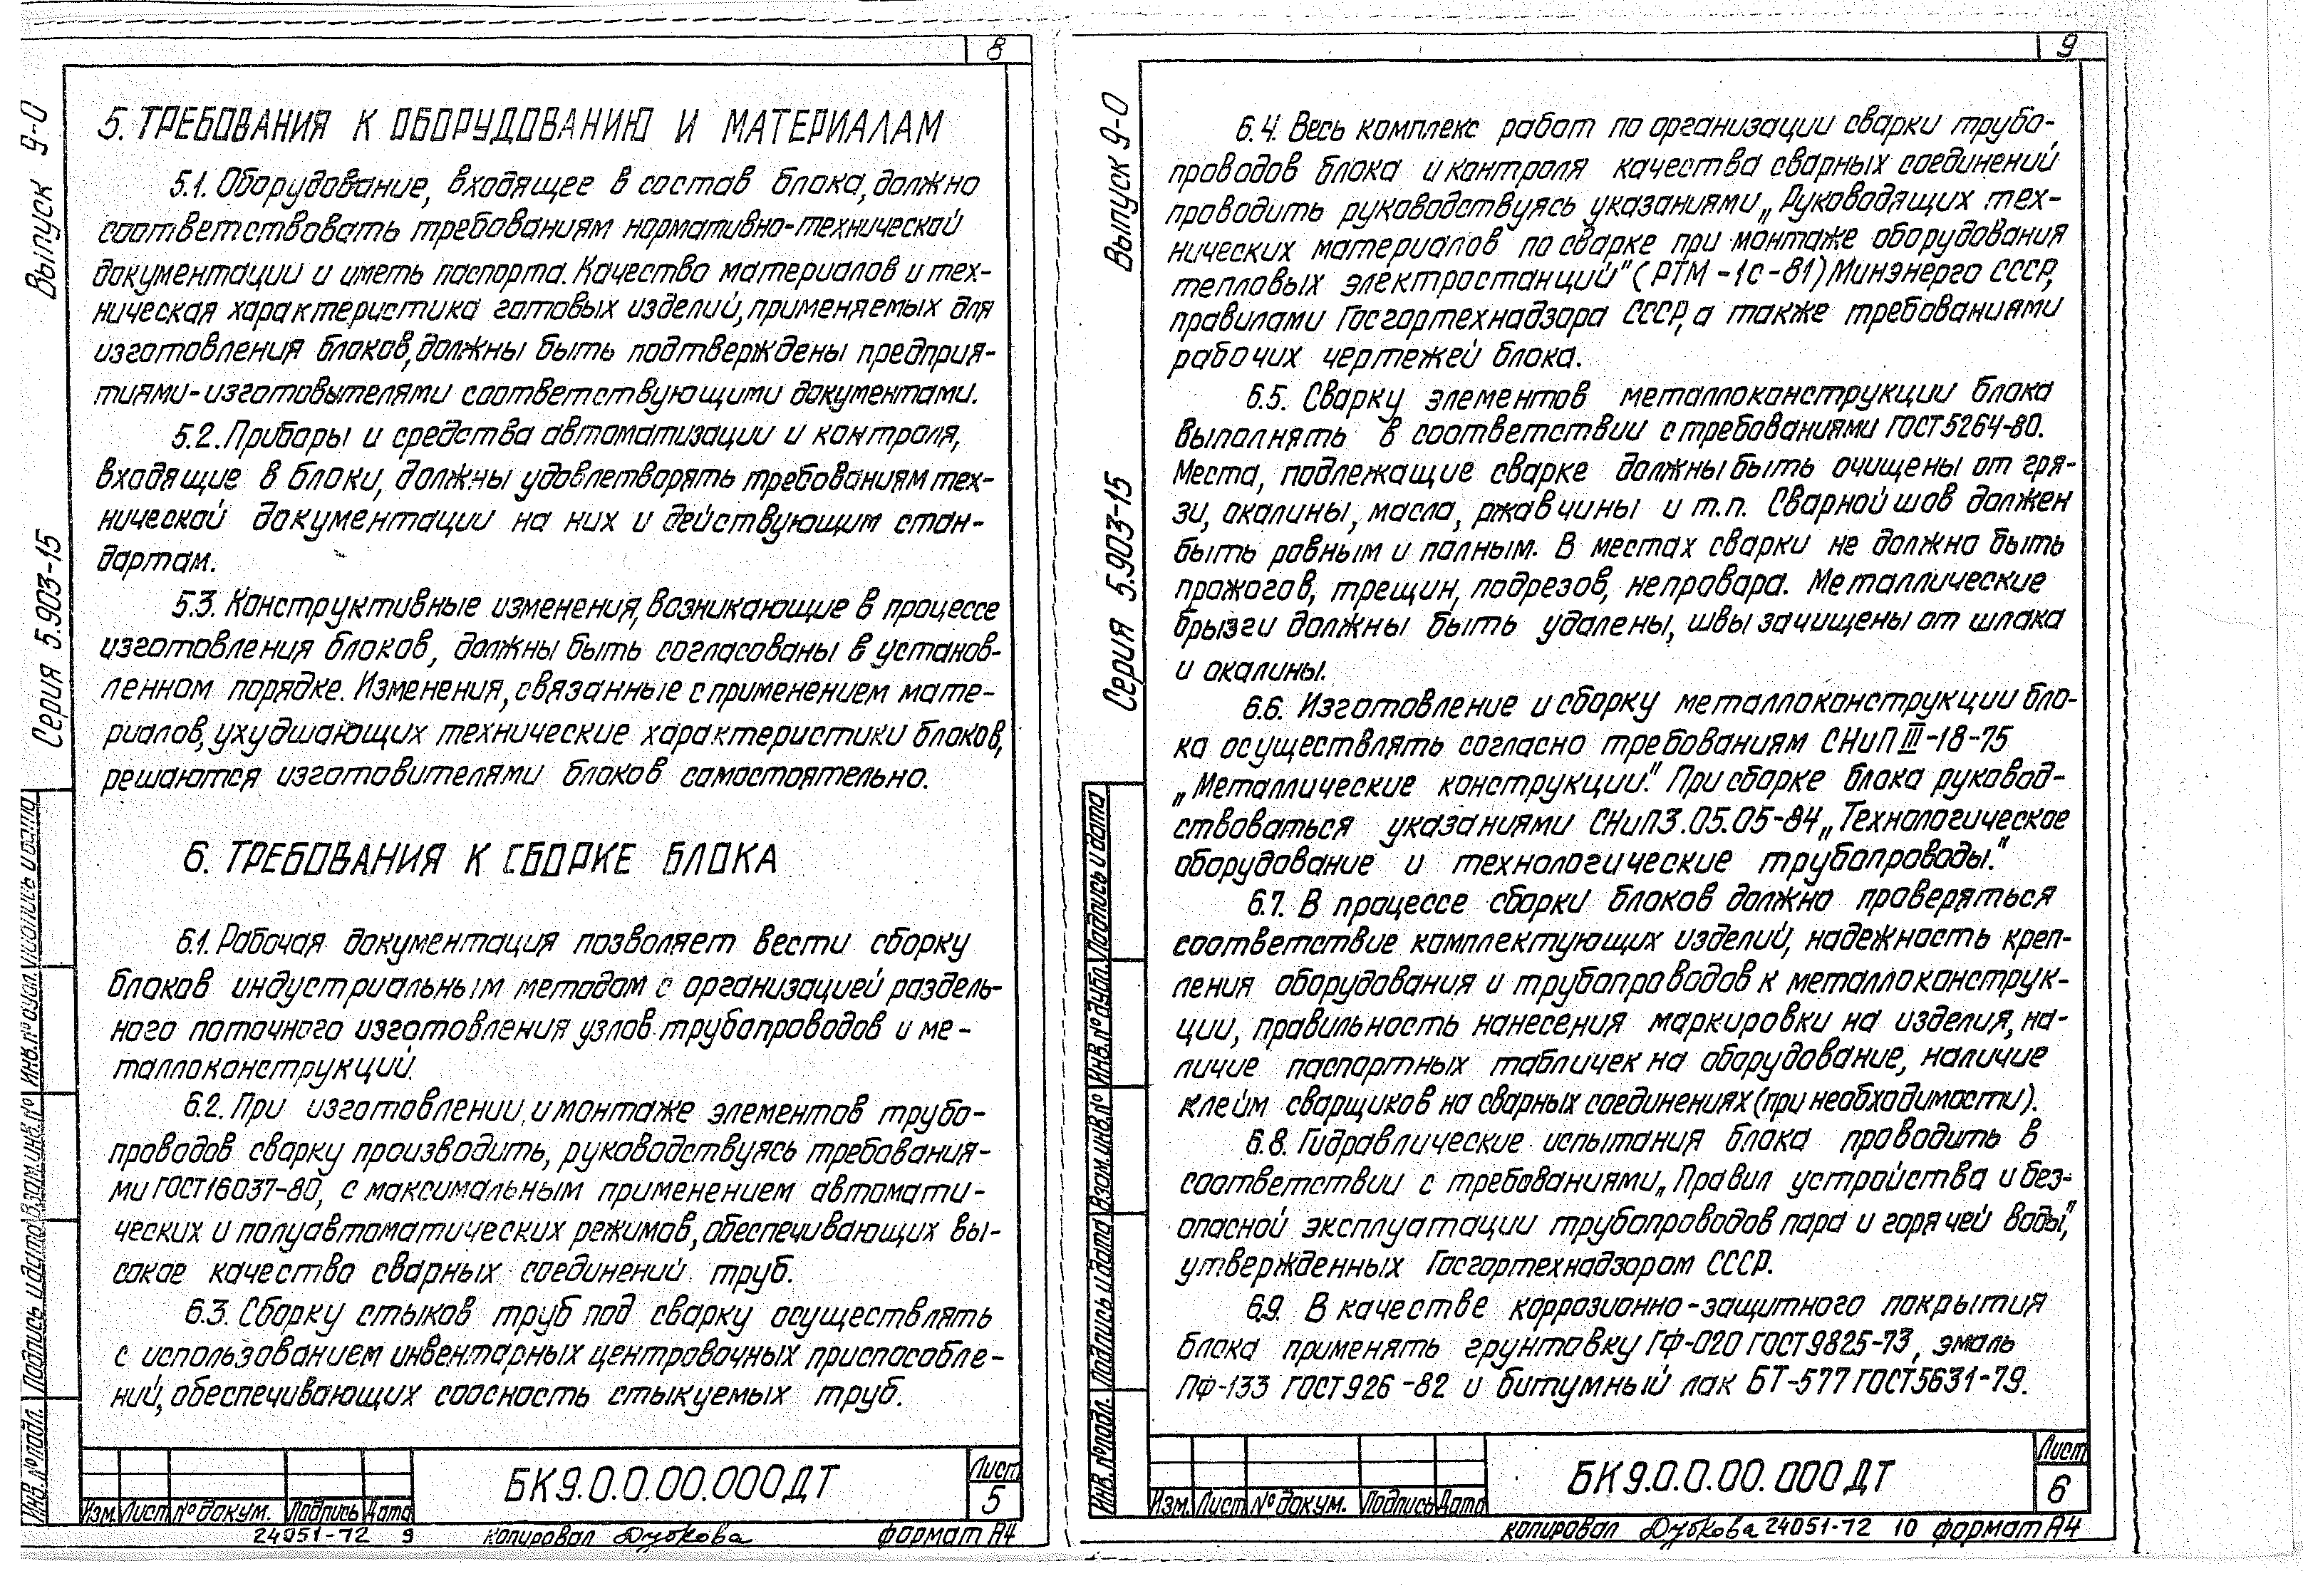 8
Выпуск 9-0
Серия 5.903-15
5. ТРЕБОВАНИЯ К ОБОРУДОВАНИЮ И МАТЕРИАЛАМ
5.1. Оборудование, входящее в состав блока, должно
соответствовать требованиям нормативно-технической
документации и иметь паспорта. Качество материалов и тех-
ническая характеристика готовых изделий, применяемых для
изготовления блоков, должны быть подтверждены предприя-
тиями-изготовытелями соответствующими документами.
5.2. Приборы и средства автоматизации и контроля,
входящие в блоки, должны удовлетворять требованиям тех-
нической документации на них и действующим стан-
дартам.
5.3. Конструктивные изменения, возникающие в процессе
изготовления блоков, должны быть согласованы в установ-
ленном порядке. Изменения, связанные с применением мате-
риалов, ухудшающих технические характеристики блоков,
решаются изготовителями блоков самостоятельно.
6. ТРЕБОВАНИЯ К СБОРКЕ БЛОКА
6.1. Рабочая документация позволяет вести сборку
блоков индустриальным методом с организацией раздель-
ного поточного изготовления узлов трубопроводов и ме-
таллоконструкций.
6.2. При изготовлении и монтаже элементов трубо-
проводов сварку производить, руководствуясь требования-
ми ГОСТ 16037-80, с максимальным применением автомати-
ческих и полуавтоматических режимов, обеспечивающих вы-
сокое качество сварных соединений труб.
6.3. Сборку стыков труб под сварку осуществлять
с использованием инвентарных центровочных приспособле-
ний, обеспечивающих соосность стыкуемых труб.
Инв. № подл. Подпись и дата Взам. инв. № Инв. № дубл. Подпись и дата
Изм. Лист № докум. Подпись Дата
БК9.0.0.00.000ДТ
Лист
5
24051-72 9 копировал Дубкова формат А4
9
Выпуск 9-0
Серия 5.903-15
6.4. Весь комплекс работ по организации сварки трубо-
проводов блока и контроля качества сварных соединений
проводить руководствуясь указаниями „Руководящих тех-
нических материалов по сварке при монтаже оборудования
тепловых электростанций" (РТМ-1с-81) Минэнерго СССР,
правилами Госгортехнадзора СССР, а также требованиями
рабочих чертежей блока.
6.5. Сварку элементов металлоконструкции блока
выполнять в соответствии с требованиями ГОСТ 5264-80.
Места, подлежащие сварке должны быть очищены от гря-
зи, окалины, масла, ржавчины и т.п. Сварной шов должен
быть ровным и полным. В местах сварки не должно быть
прожогов, трещин, подрезов, непровара. Металлические
брызги должны быть удалены, швы зачищены от шлака
и окалины.
6.6. Изготовление и сборку металлоконструкции бло-
ка осуществлять согласно требованиям СНиП III-18-75
„Металлические конструкции". При сборке блока руковод-
ствоваться указаниями СНиП 3.05.05-84 „Технологическое
оборудование и технологические трубопроводы."
6.7. В процессе сборки блоков должно проверяться
соответствие комплектующих изделий, надежность креп-
ления оборудования и трубопроводов к металлоконструк-
ции, правильность нанесения маркировки на изделия, на-
личие паспортных табличек на оборудование, наличие
клейм сварщиков на сварных соединениях (при необходимости).
6.8. Гидравлические испытания блока проводить в
соответствии с требованиями „Правил устройства и без-
опасной эксплуатации трубопроводов пара и горячей воды",
утвержденных Госгортехнадзором СССР.
6.9. В качестве коррозионно-защитного покрытия
блока применять грунтовку ГФ-020 ГОСТ 9825-73, эмаль
ПФ-133 ГОСТ 926-82 и битумный лак БТ-577 ГОСТ 5631-79.
Инв. № подл. Подпись и дата Взам. инв. № Инв. № дубл. Подпись и дата
Изм. Лист № докум. Подпись Дата
БК9.0.0.00.000ДТ
Лист
6
копировал Дубкова 24051-72 10 формат А4